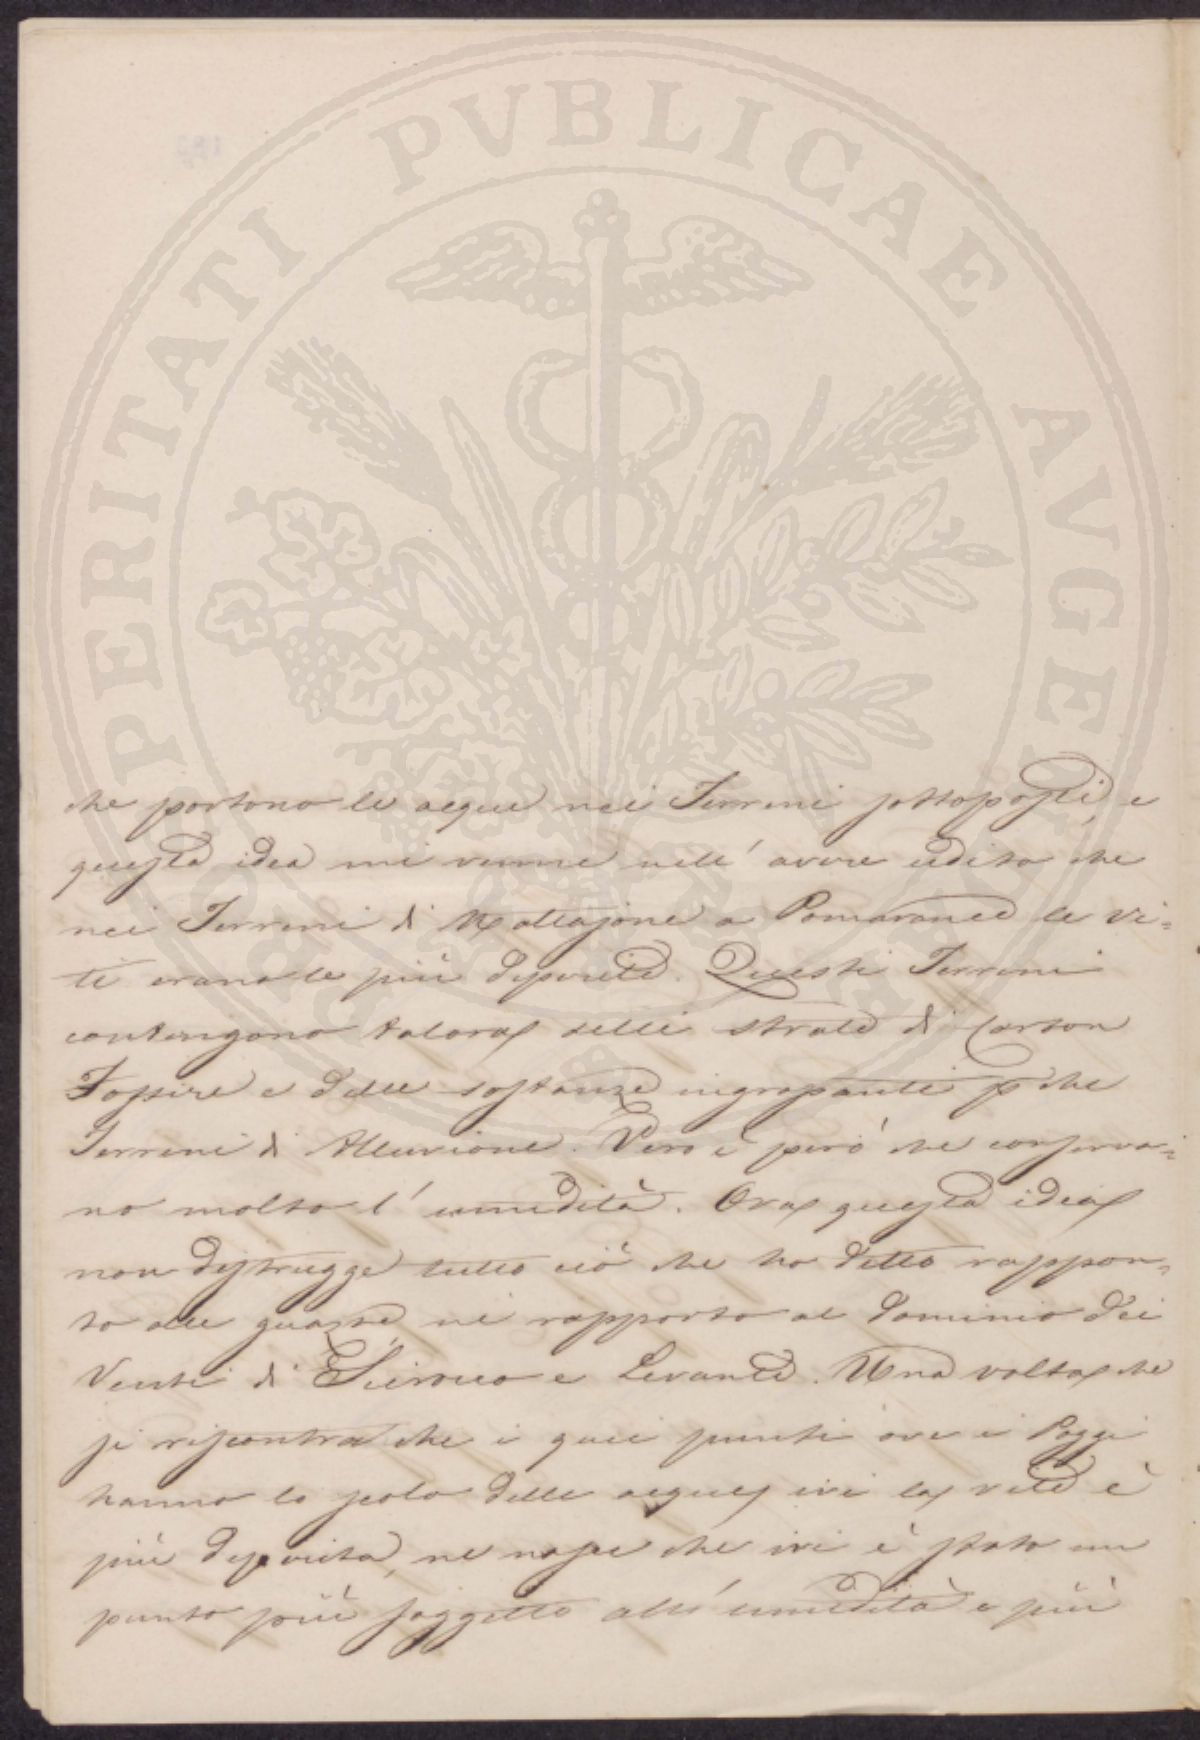 PROSPERITATI PUBLICAE AUGENDAE
che portono le acque nei Terreni sottoposti, e
questa idea mi venne nell' avere udito che
nei Terreni di Mattajone a Pomarance le vi=
ti erano le più deperite. Questi Terreni
contengono talora delli strate di Carbon
Fossire e delle sostanze ingrassanti p che
Terreni di Alluvione. Vero è però che conserva=
no molto l' umidità. Ora questa idea
non distrugge tutto ciò che ho detto rappor=
to alle guazze nè rapporto al dominio dei
Venti di Scirocco e Levante. Una volta che
si riscontra che i quei punti ove i Poggi
hanno lo scolo delle acque, ivi la vite è
più deperita, ne nasce che ivi è stato un
punto più soggetto all' umidità e più